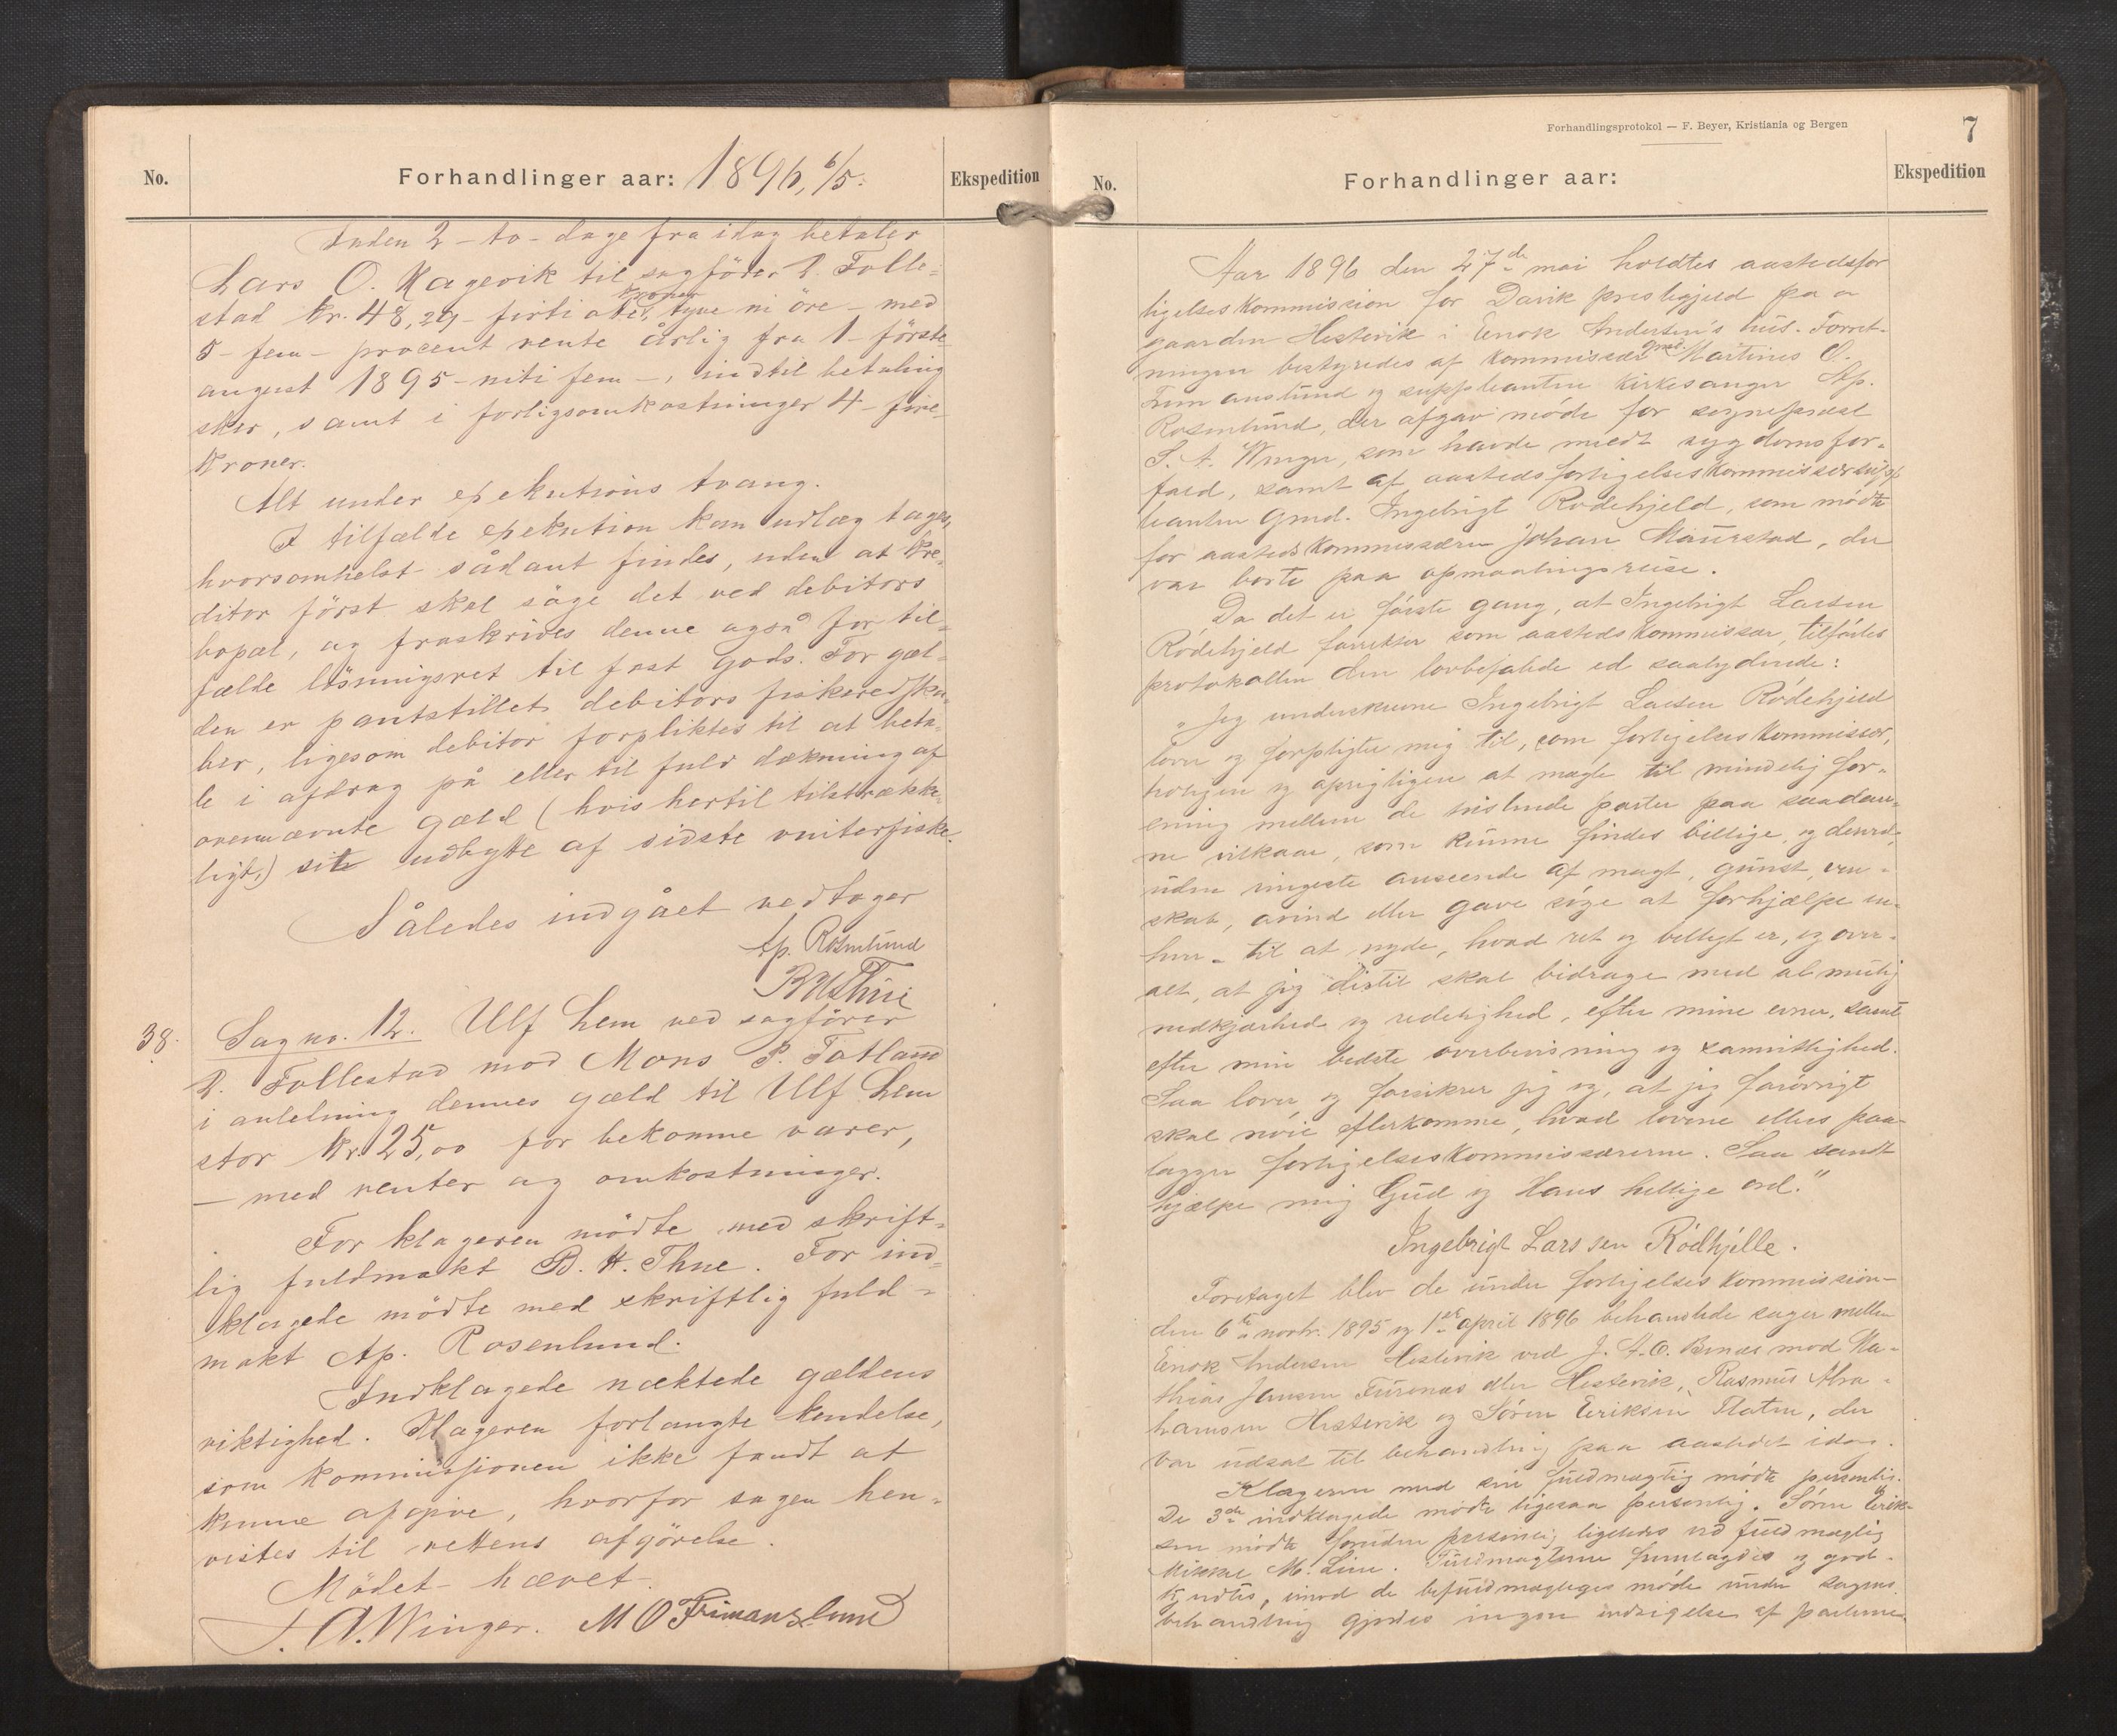 No.
Forhandlinger aar: 1896, 6/5.
Ekspedition
Inden 2 - to - dage fra idag betaler
Lars O. Hagevik til sagförer P. Folle-
stad kr. 48,29 - firti otte kroner, tyve ni öre - med
5 - fem - procent rente årlig fra 1 - förste
august 1895 - niti fem -, indtil betaling
sker, samt i forligsomkostninger 4 - fire -
kroner.
Alt under exekutions tvang.
I tilfælde exekution kan udlæg tages,
hvorsomhelst sådant findes, uden at kre-
ditor först skal söge det ved debitors
bopæl, og fraskrives denne også for til-
fælde lösningsret til fast gods. For gæl-
den er pantstillet debitors fiskeredska-
ber, ligesom debitor forpliktes til at beta-
le i afdrag på eller til fuld dækning af
ovennævnte gæld (hvis hertil tilstrække-
ligt,) sit udbytte af sidste vinterfiske.
Således indgået vedtager
Ap. Rosenlund
B H Thue
38. Sag no. 12. Ulf Lem ved sagförer
P. Follestad mod Mons P. Tatland
i anledning dennes gæld til Ulf Lem
stor kr. 25,00 for bekomne varer,
- med renter og omkostninger.
For klageren mödte med skrift-
lig fuldmakt B. H. Thue. For ind-
klagede mödte med skriftlig fuld-
makt Ap. Rosenlund.
Indklagede nektede gældens
riktighed. Klageren forlangte kendelse,
som kommissjonen ikke fandt at
kunne afgive, hvorfor sagen hen-
vistes til rettens afgörelse.
Mödet hævet.
S. A. Winger. M O Frimanslund
Forhandlingsprotokol — F. Beyer, Kristiania og Bergen
7
No.
Forhandlinger aar:
Ekspedition
Aar 1896 den 27de mai holdtes aastedsfor
ligelseskommission for Davik prestegjeld paa
gaarden Hestevik i Enok Andersen's hus. Forret-
ningen bestyredes af kommissær gmd. Martinus O.
Frimanslund og suppleanten kirkesanger Ap.
Rosenlund, der afgav møde for sogneprest
S. A. Winger, som havde meldt sygdomsfor-
fald, samt af aastedsforligelseskommissærsupp-
leanten gmd. Ingebrigt Rødehjeld, som mødte
for aastedskommissæren Johan Maurstad, der
var borte paa opmaalingsreise.
Da det er første gang, at Ingebrigt Larsen
Rødehjeld forretter som aastedskommissær, tilførtes
protokollen den lovbefalede ed saalydende:
"Jeg underskrevne Ingebrigt Larsen Rødehjeld
lover og forpligter mig til, som forligelseskommissær,
troligen og oprigtigen at mægle til mindelig for-
ening mellem de tvistende parter paa saadan-
ne vilkaar, som kunne findes billige, og derved,
uden ringeste anseende af magt, gunst, ven-
skab, avind eller gave søge at forhjælpe en-
hver til at nyde, hvad ret og billigt er, og over-
alt, at jeg dertil skal bidrage med al mulig
nidkjærhed og redelighed, efter mine evner, samt
efter min bedste overbevisning og samvittighed.
Saa lover og forsikrer jeg og, at jeg forøvrigt
skal nøie efterkomme, hvad lovene ellers paa-
lægger forligelseskommissærerne. Saa sandt
hjælpe mig Gud og Hans hellige ord."
Ingebrigt Larssen Rödhjelle.
Foretaget blev de under forligelseskommission
den 6te novbr. 1895 og 1ste april 1896 behandlede sager mellem
Enok Andersen Hestevik ved J. A. O. mod Ma-
thias Jansen Furenæs eller Hestevik, Rasmus Abra-
hamsen Hestevik og Søren Eriksen Flaten, der
var udsat til behandling paa aastedet idag.
Klageren med sin fuldmægtig mødte personlig.
De 3de indklagede mødte ligesaa personlig. Søren Erik-
sen mødte foruden personlig ligeledes ved fuldmægtig
Mikkel M. Fuldmagterne fremlagdes og god-
kjendtes, imod de befuldmægtiges møde under sagens
behandling gjordes ingen indsigelse af parterne.